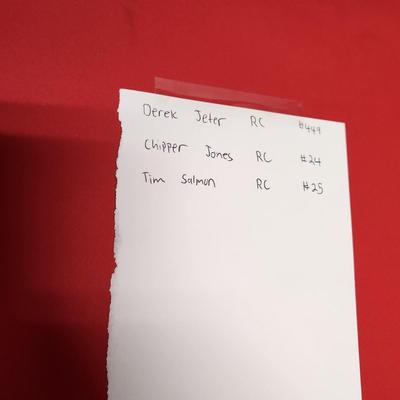 Derek Jeter RC #449
Chipper Jones RC #24
Tim Salmon RC #25